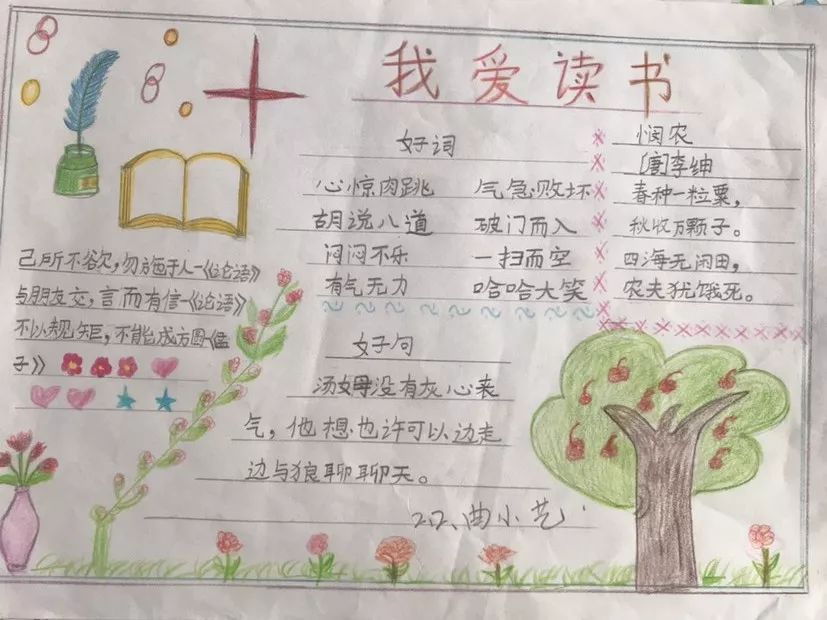 我爱读书
好词
心惊肉跳 气急败坏
胡说八道 破门而入
闷闷不乐 一扫而空
有气无力 哈哈大笑
悯农
[唐]李绅
春种一粒粟,
秋收万颗子。
四海无闲田,
农夫犹饿死。
己所不欲,勿施于人-《论语》
与朋友交,言而有信-《论语》
不以规矩,不能成方圆-《孟
子》
好句
汤姆没有灰心丧
气,他想也许可以边走
边与狼聊聊天。
2.2、曲小艺